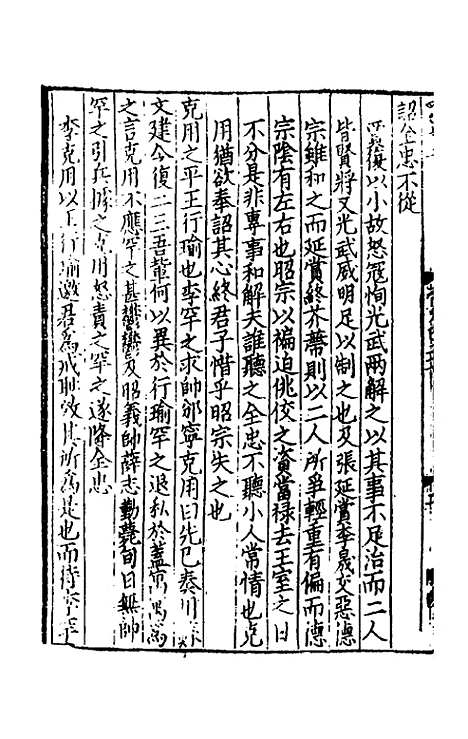 詔全忠不從
賈復以小故怒寇恂光武兩解之以其事不足治而二人
皆賢將又光武威明足以制之也及張延賞李晟交惡德
宗雖和之而延賞終芥蔕則以二人所爭輕重有偏而德
宗陰有左右也昭宗以褊迫佻佼之資當禄去王室之日
不分是非專事和解夫誰聽之全忠不聽小人常情也克
用猶欲奉詔其心終君子惜乎昭宗失之也
克用之平王行瑜也李罕之求帥邠寧克用曰先已奏川
文建今復二三吾輩何以異於行瑜罕之退私於蓋寓寓為
之言克用不應罕之甚鬱鬱及昭義帥薛志勤薨旬日無帥
罕之引兵據之克用怒責之罕之遂降全忠
李克用以王行瑜邀君為戒恥效其所為是也而待李罕